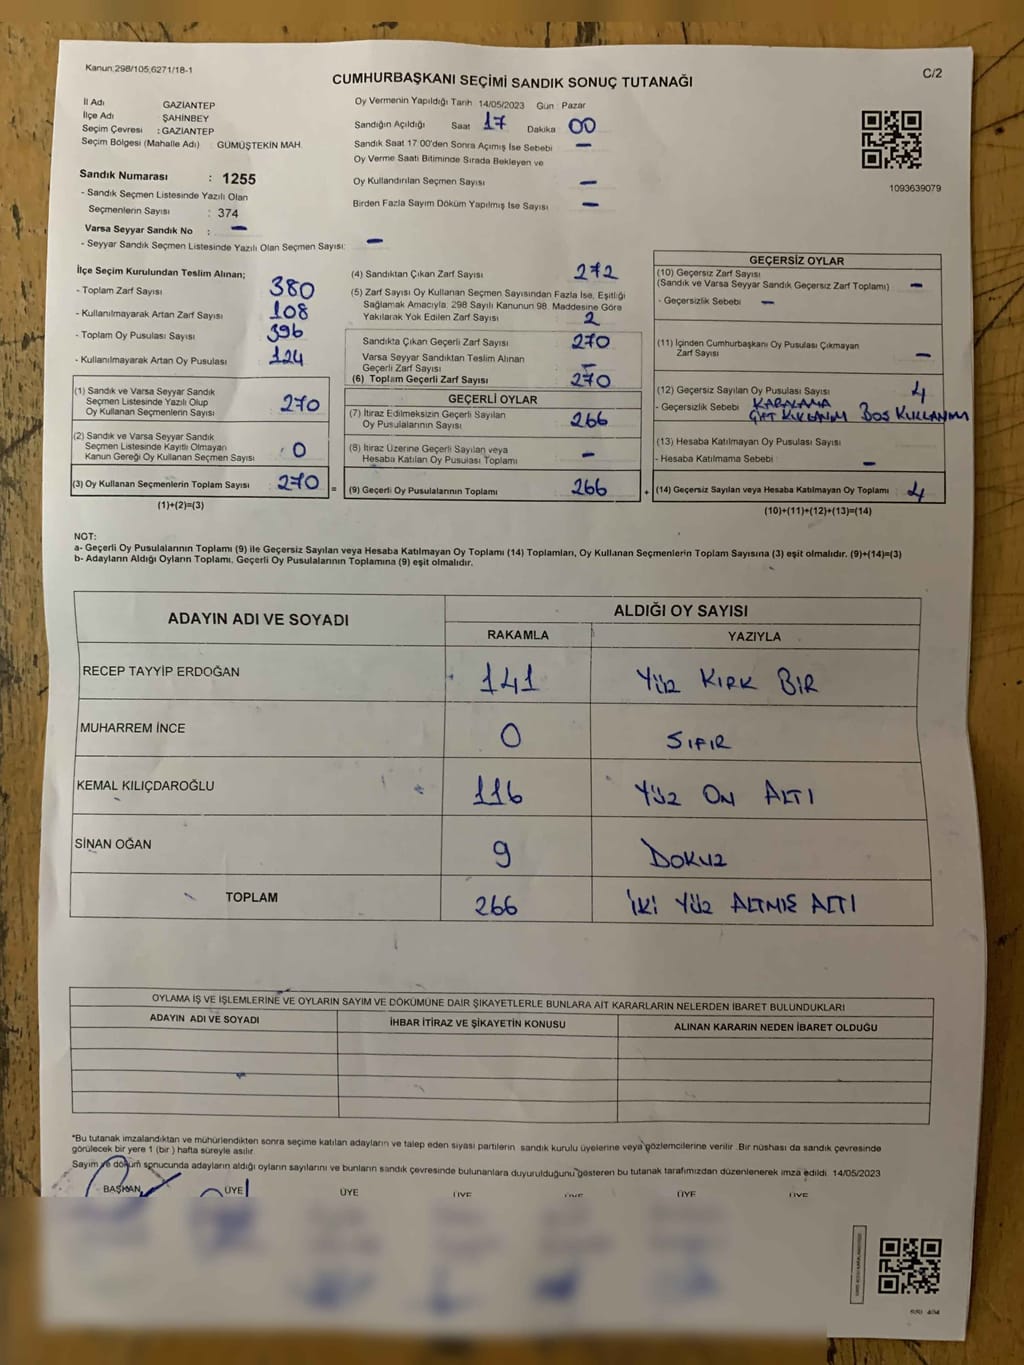 Kanun;298/105;6271/18-1
C/2
CUMHURBAŞKANI SEÇİMİ SANDIK SONUÇ TUTANAĞI
İl Adı GAZİANTEP
İlçe Adı : ŞAHİNBEY
Seçim Çevresi : GAZİANTEP
Seçim Bölgesi (Mahalle Adı) : GÜMÜŞTEKİN MAH.
Sandık Numarası : 1255
- Sandık Seçmen Listesinde Yazılı Olan
Seçmenlerin Sayısı : 374
Varsa Seyyar Sandık No : -
- Seyyar Sandık Seçmen Listesinde Yazılı Olan Seçmen Sayısı: -
Oy Vermenin Yapıldığı Tarih 14/05/2023 Gün : Pazar
Sandığın Açıldığı Saat 17 Dakika 00
Sandık Saat 17 00'den Sonra Açımış İse Sebebi -
Oy Verme Saati Bitiminde Sırada Bekleyen ve
Oy Kullandırılan Seçmen Sayısı -
Birden Fazla Sayım Döküm Yapılmış İse Sayısı -
1093639079
İlçe Seçim Kurulundan Teslim Alınan;
- Toplam Zarf Sayısı 380
- Kullanılmayarak Artan Zarf Sayısı 108
- Toplam Oy Pusulası Sayısı 396
- Kullanılmayarak Artan Oy Pusulası 124
(1) Sandık ve Varsa Seyyar Sandık
Seçmen Listesinde Yazılı Olup
Oy Kullanan Seçmenlerin Sayısı 270
(2) Sandık ve Varsa Seyyar Sandık
Seçmen Listesinde Kayıtlı Olmayan
Kanun Gereği Oy Kullanan Seçmen Sayısı 0
(3) Oy Kullanan Seçmenlerin Toplam Sayısı 270 =
(1)+(2)=(3)
(4) Sandıktan Çıkan Zarf Sayısı 272
(5) Zarf Sayısı Oy Kullanan Seçmen Sayısından Fazla İse, Eşitliği
Sağlamak Amacıyla. 298 Sayılı Kanunun 98. Maddesine Göre
Yakılarak Yok Edilen Zarf Sayısı 2
Sandıkta Çıkan Geçerli Zarf Sayısı 270
Varsa Seyyar Sandıktan Teslim Alınan
Geçerli Zarf Sayısı -
(6) Toplam Geçerli Zarf Sayısı 270
GEÇERLİ OYLAR
(7) İtiraz Edilmeksizin Geçerli Sayılan
Oy Pusulalarının Sayısı 266
(8) İtiraz Üzerine Geçerli Sayılan veya
Hesaba Katılan Oy Pusulası Toplamı -
(9) Geçerli Oy Pusulalarının Toplamı 266 +
GEÇERSİZ OYLAR
(10) Geçersiz Zarf Sayısı
(Sandık ve Varsa Seyyar Sandık Geçersiz Zarf Toplamı) -
- Geçersizlik Sebebi -
(11) İçinden Cumhurbaşkanı Oy Pusulası Çıkmayan
Zarf Sayısı -
(12) Geçersiz Sayılan Oy Pusulası Sayısı 4
- Geçersizlik Sebebi KARALAMA
ÇİFT KULLANIM BOŞ KULLANIM
(13) Hesaba Katılmayan Oy Pusulası Sayısı
- Hesaba Katılmama Sebebi -
(14) Geçersiz Sayılan veya Hesaba Katılmayan Oy Toplamı 4
(10)+(11)+(12)+(13)=(14)
NOT:
a- Geçerli Oy Pusulalarının Toplamı (9) ile Geçersiz Sayılan veya Hesaba Katılmayan Oy Toplamı (14) Toplamları, Oy Kullanan Seçmenlerin Toplam Sayısına (3) eşit olmalıdır. (9)+(14)=(3)
b- Adayların Aldığı Oyların Toplamı, Geçerli Oy Pusulalarının Toplamına (9) eşit olmalıdır.
ADAYIN ADI VE SOYADI ALDIĞI OY SAYISI
RAKAMLA YAZIYLA
RECEP TAYYİP ERDOĞAN 141 YÜZ KIRK BİR
MUHARREM İNCE 0 SIFIR
KEMAL KILIÇDAROĞLU 116 YÜZ ON ALTI
SİNAN OĞAN 9 DOKUZ
TOPLAM 266 İKİ YÜZ ALTMIŞ ALTI
OYLAMA İŞ VE İŞLEMLERİNE VE OYLARIN SAYIM VE DÖKÜMÜNE DAİR ŞİKAYETLERLE BUNLARA AİT KARARLARIN NELERDEN İBARET BULUNDUKLARI
ADAYIN ADI VE SOYADI İHBAR İTİRAZ VE ŞİKAYETİN KONUSU ALINAN KARARIN NEDEN İBARET OLDUĞU
*Bu tutanak imzalandıktan ve mühürlendikten sonra seçime katılan adayların ve talep eden siyasi partilerin sandık kurulu üyelerine veya gözlemcilerine verilir .Bir nüshası da sandık çevresinde
görülecek bir yere 1 (bir ) hafta süreyle asılır.
Sayım ve döküm sonucunda adayların aldığı oyların sayılarını ve bunların sandık çevresinde bulunanlara duyurulduğunu gösteren bu tutanak tarafımızdan düzenlenerek imza edildi. 14/05/2023
BAŞKAN ÜYE ÜYE ÜYE ÜYE ÜYE ÜYE